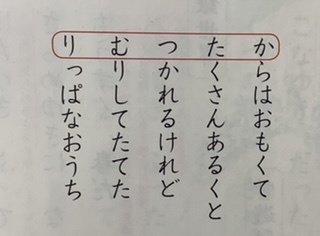 からはおもくて
たくさんあるくと
つかれるけれど
むりしてたてた
りっぱなおうち